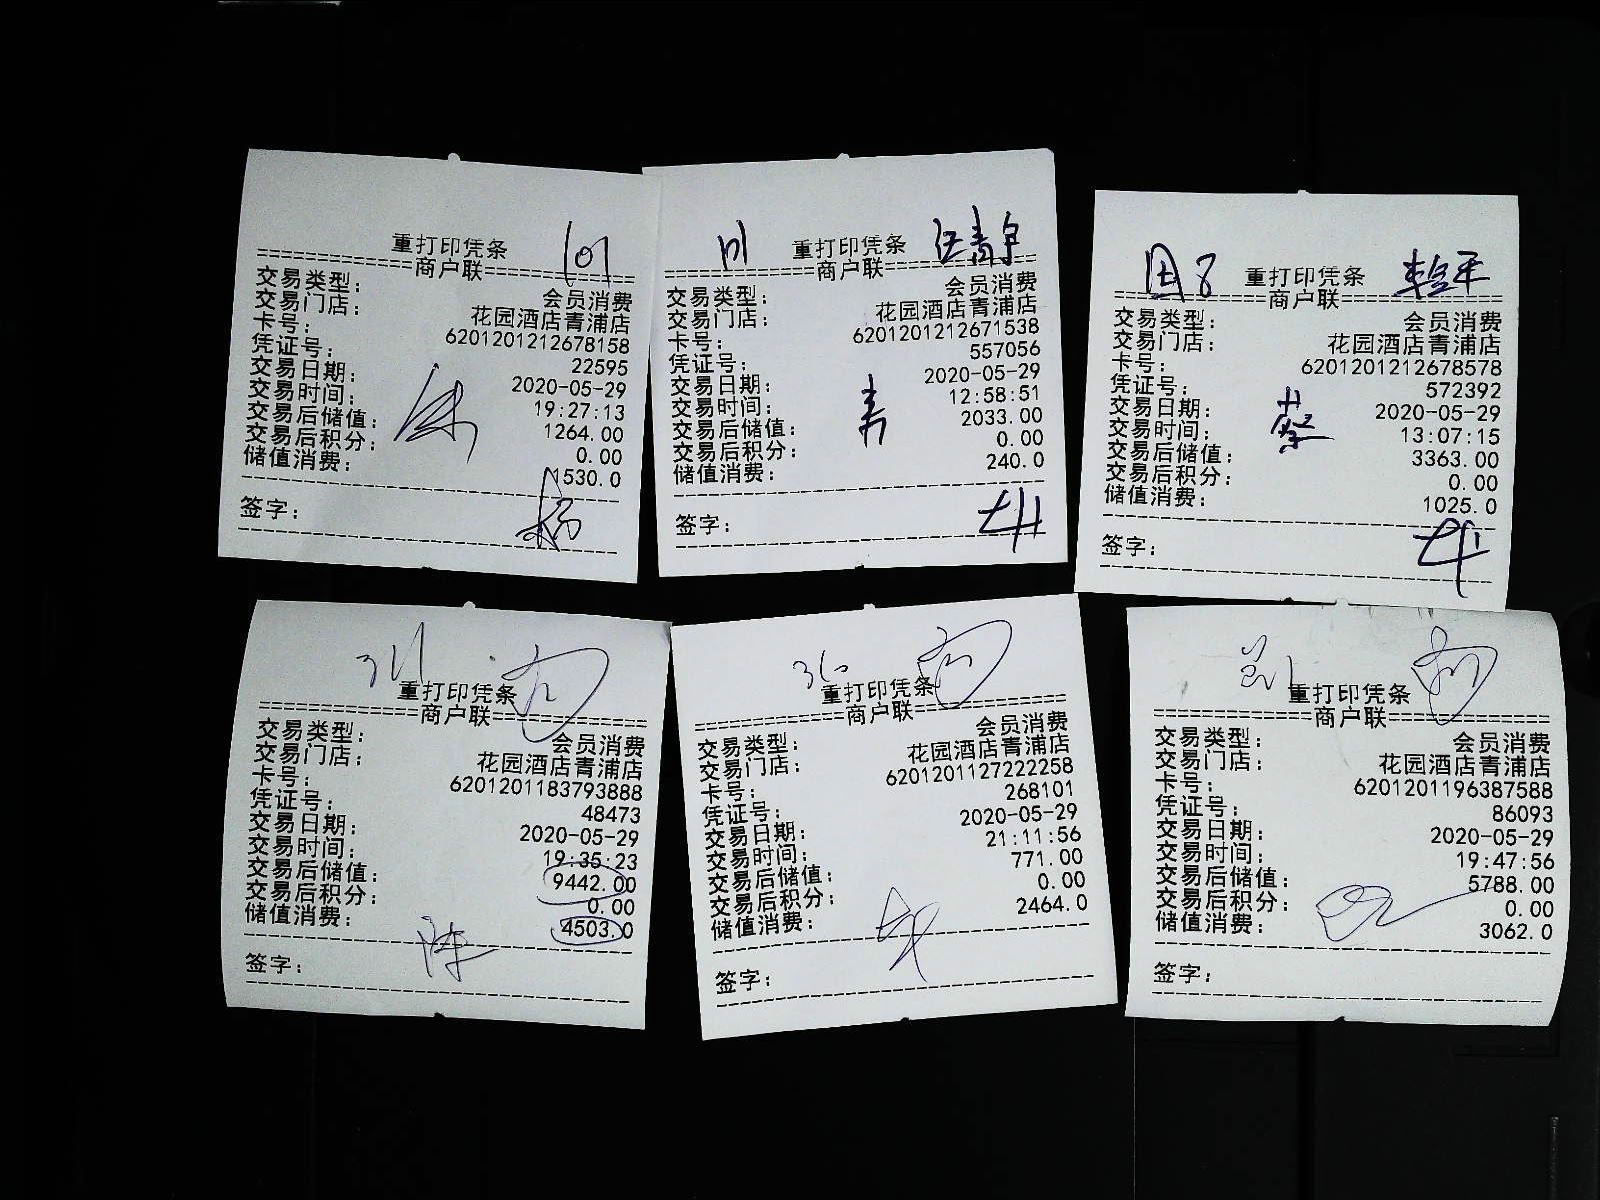 101
重打印凭条
商户联
交易类型： 会员消费
交易门店： 花园酒店青浦店
卡号： 6201201212678158
凭证号： 22595
交易日期： 2020-05-29
交易时间： 19:27:13
交易后储值： 1264.00
交易后积分： 0.00
储值消费： 1530.0
签字：
重打印凭条
商户联
交易类型： 会员消费
交易门店： 花园酒店青浦店
卡号： 6201201212671538
凭证号： 557056
交易日期： 2020-05-29
交易时间： 12:58:51
交易后储值： 2033.00
交易后积分： 0.00
储值消费： 240.0
签字：
重打印凭条
商户联
交易类型： 会员消费
交易门店： 花园酒店青浦店
卡号： 6201201212678578
凭证号： 572392
交易日期： 2020-05-29
交易时间： 13:07:15
交易后储值： 3363.00
交易后积分： 0.00
蔡
储值消费： 1025.0
签字：
311
重打印凭条
商户联
交易类型： 会员消费
交易门店： 花园酒店青浦店
卡号： 6201201183793888
凭证号： 48473
交易日期： 2020-05-29
交易时间： 19:35:23
交易后储值： 9442.00
交易后积分： 0.00
储值消费： 4503.0
陈
签字：
重打印凭条
商户联
交易类型： 会员消费
交易门店： 花园酒店青浦店
卡号： 6201201127222258
凭证号： 268101
交易日期： 2020-05-29
交易时间： 21:11:56
交易后储值： 771.00
交易后积分： 0.00
储值消费： 2464.0
签字：
重打印凭条
商户联
交易类型： 会员消费
交易门店： 花园酒店青浦店
卡号： 6201201196387588
凭证号： 86093
交易日期： 2020-05-29
交易时间： 19:47:56
交易后储值： 5788.00
交易后积分： 0.00
储值消费： 3062.0
签字：